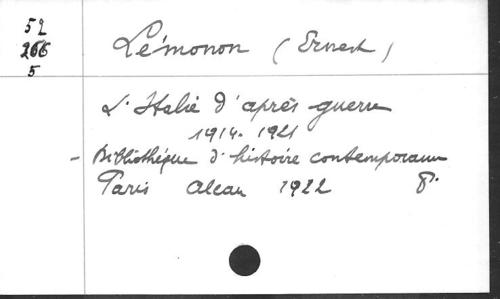 52
266
5
Lémonon (Ernest)
L'Italie d'après guerre
1914-1921
- Bibliothèque d'histoire contemporaine
Paris Alcan 1922 8°.